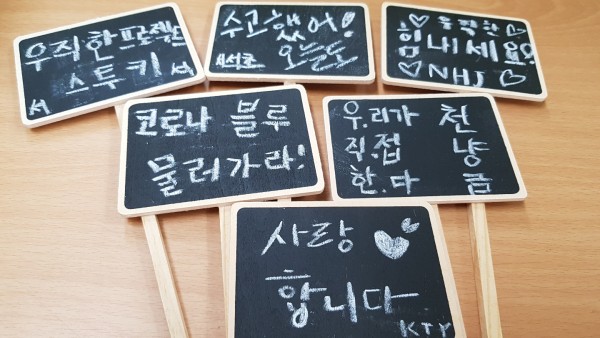 우직한프로젝트
스투키
수고했어!
오늘도
우직한
힘내세요?
NHJ
코로나 블루
물러가라!
우.리가
직.접
한.다
천
냥
금
사랑
합니다
KTY